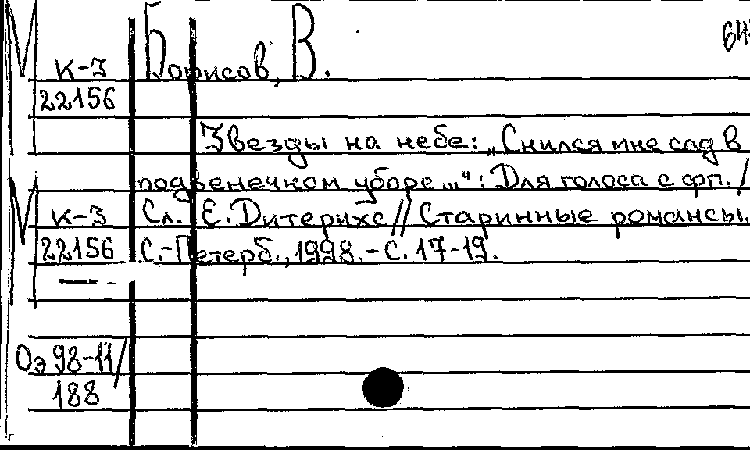 Борисов, В.
К-3
22156
Звезды на небе: „Снился мне сад в
подвенечном уборе...": Для голоса с фп. /
К-3 Сл. Е. Дитерихс // Старинные романсы.
22156 С.-Петерб., 1998. - С. 17-19.
Оэ 98-11/
188